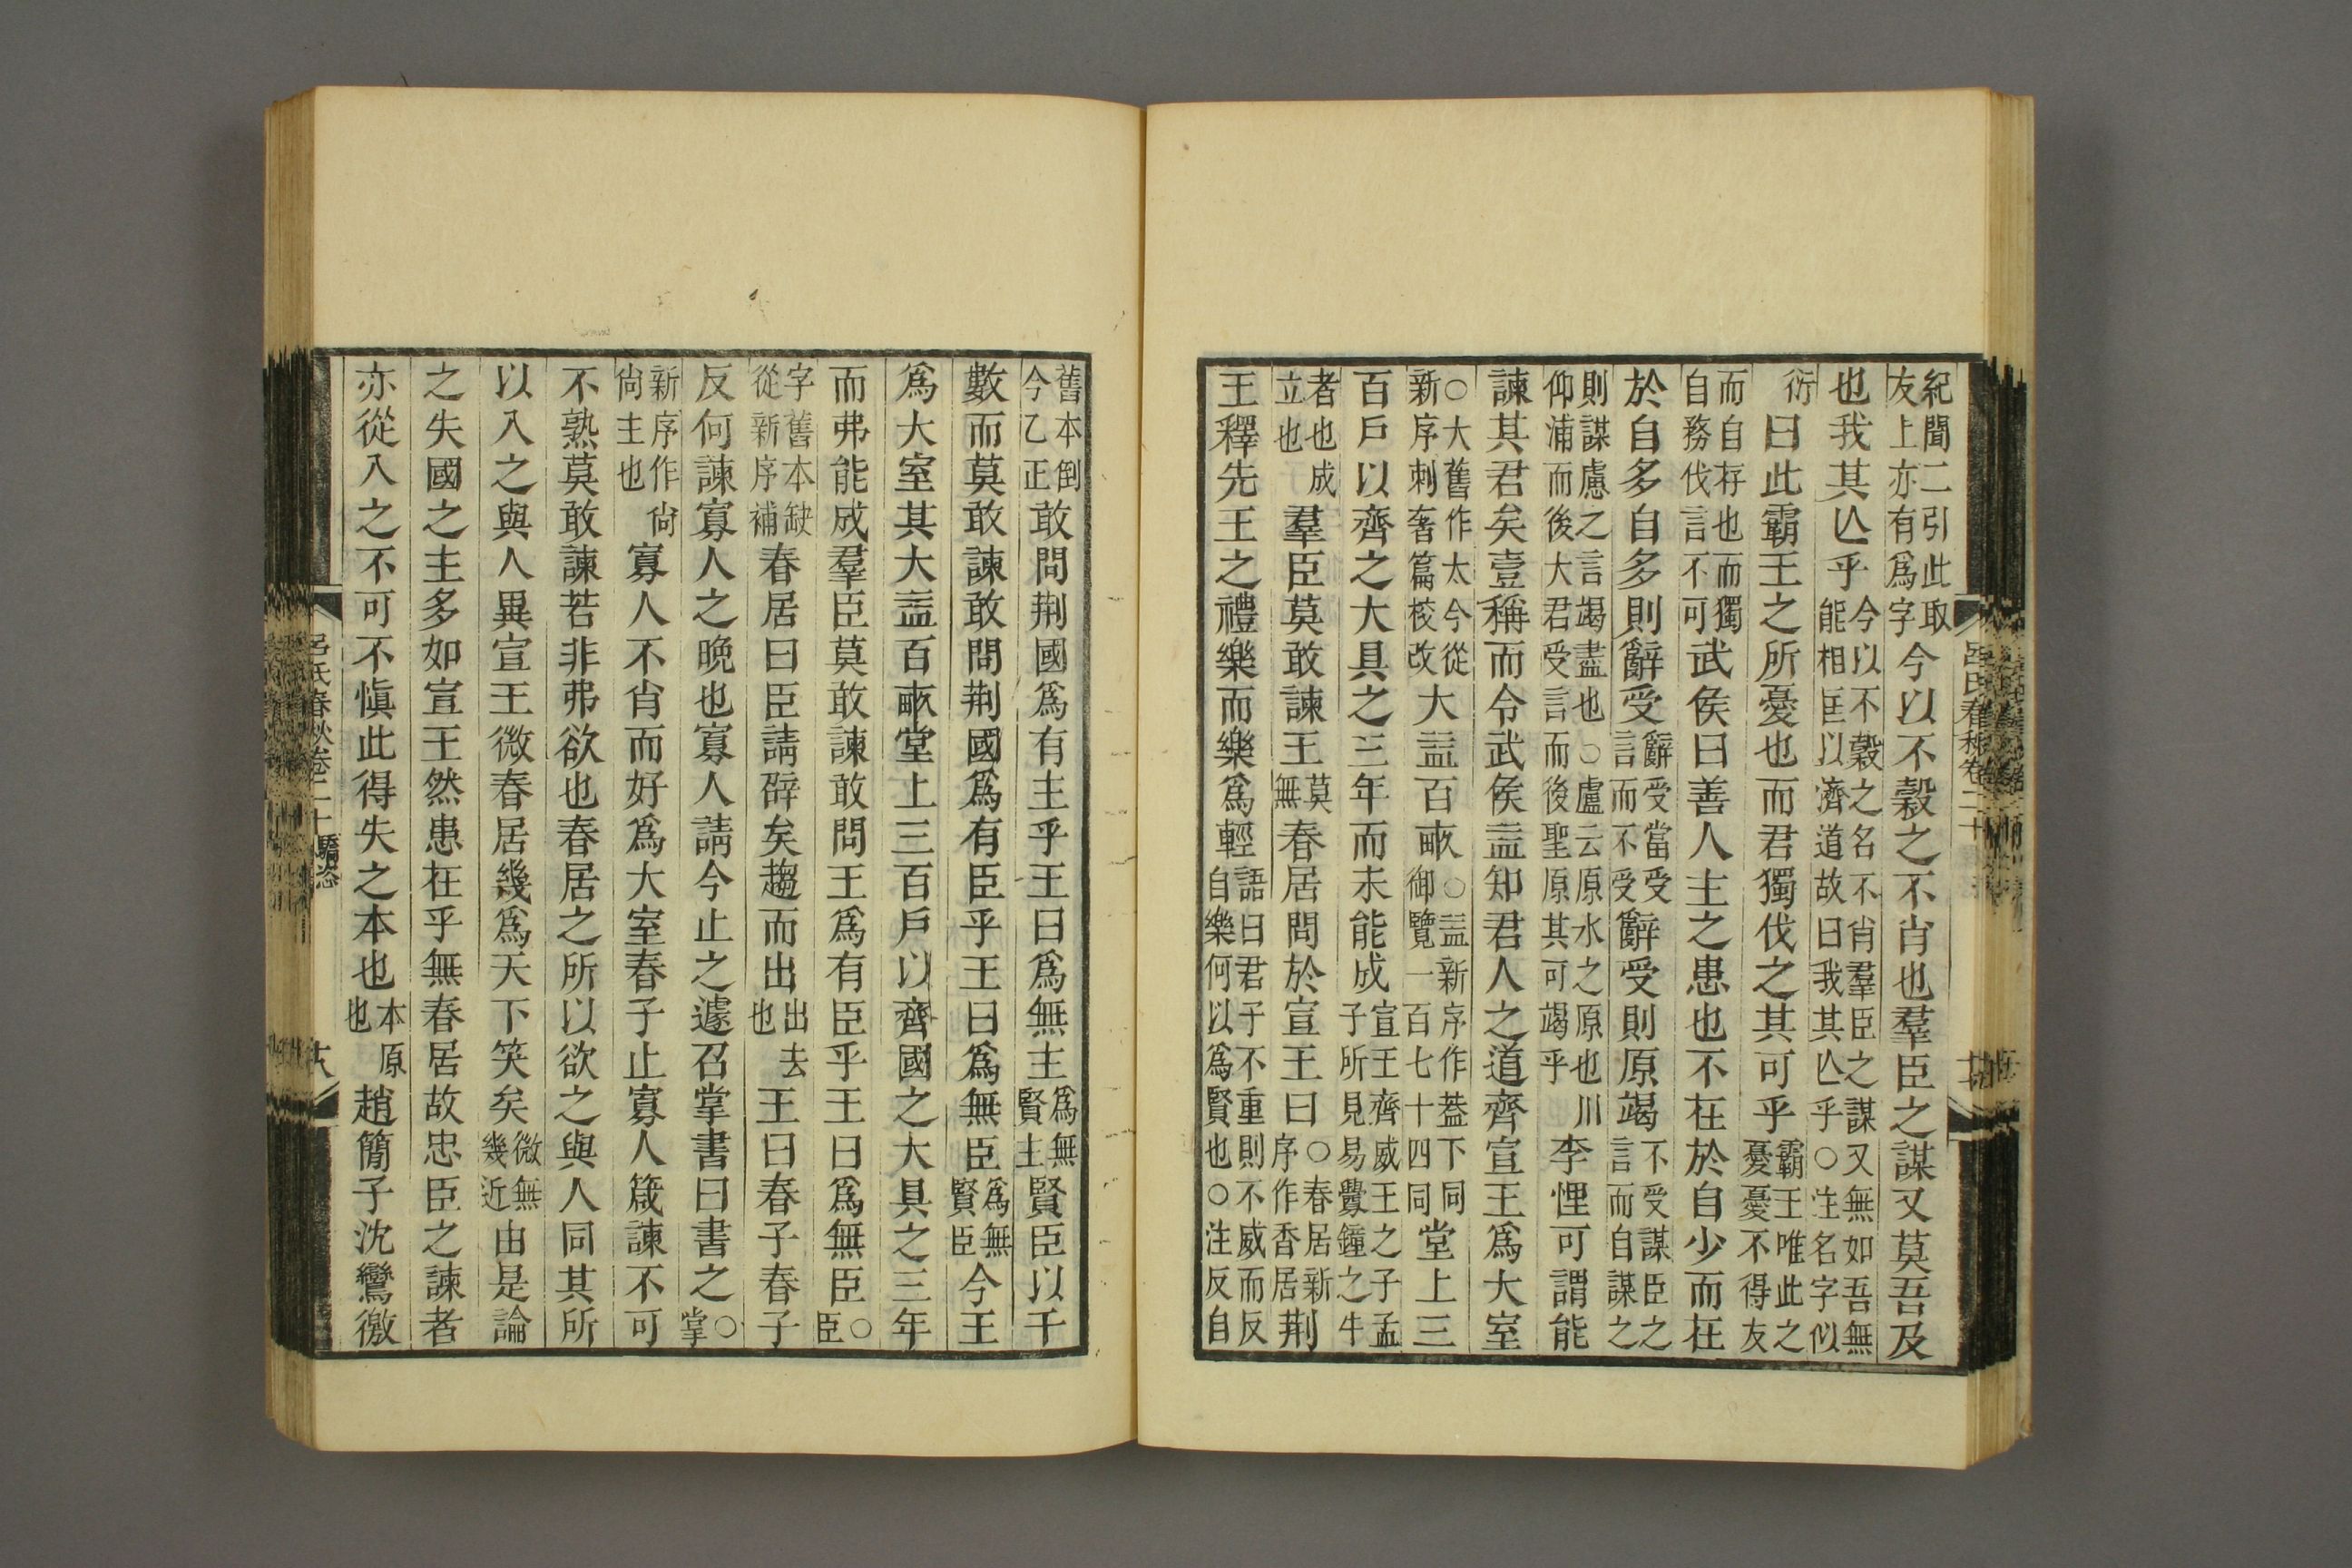 紀聞二引此取友上亦有爲字今以不穀之不肖也羣臣之謀又莫吾及
也我其亾乎今以不穀之名不肖羣臣之謀又無如吾無能相匡以濟道故曰我其亾乎○注名字似
衍曰此霸王之所憂也而君獨伐之其可乎霸王唯此之憂憂不得友
而自存也而獨自務伐言不可武侯曰善人主之患也不在於自少而在
於自多自多則辭受辭受當受言而不受辭受則原竭不受謀臣之言而自謀之
則謀慮之言竭盡也○盧云原水之原也川仰浦而後大君受言而後聖原其可竭乎李悝可謂能
諫其君矣壹稱而令武侯益知君人之道齊宣王爲大室
○大舊作太今從新序刺奢篇校改大益百畝○益新序作葢下同御覽一百七十四同堂上三
百戶以齊之大具之三年而未能成宣王齊威王之子孟子所見易釁鐘之牛
者也成立也羣臣莫敢諫王莫無春居問於宣王曰○春居新序作香居荆
王釋先王之禮樂而樂爲輕語曰君子不重則不威而反自樂何以爲賢也○注反自
呂氏春秋卷二十
舊本倒今乙正敢問荆國爲有主乎王曰爲無主爲無賢主賢臣以千
數而莫敢諫敢問荆國爲有臣乎王曰爲無臣爲無賢臣今王
爲大室其大益百畝堂上三百戶以齊國之大具之三年
而弗能成羣臣莫敢諫敢問王爲有臣乎王曰爲無臣○臣
字舊本缺從新序補春居曰臣請辟矣趨而出出去也王曰春子春子
反何諫寡人之晚也寡人請今止之遽召掌書曰書之○掌
新序作尙尙主也寡人不肖而好爲大室春子止寡人箴諫不可
不熟莫敢諫若非弗欲也春居之所以欲之與人同其所
以入之與人異宣王微春居幾爲天下笑矣微無幾近由是論
之失國之主多如宣王然患在乎無春居故忠臣之諫者
亦從入之不可不愼此得失之本也本原也趙簡子沈鸞徼
呂氏春秋卷二十 驕恣